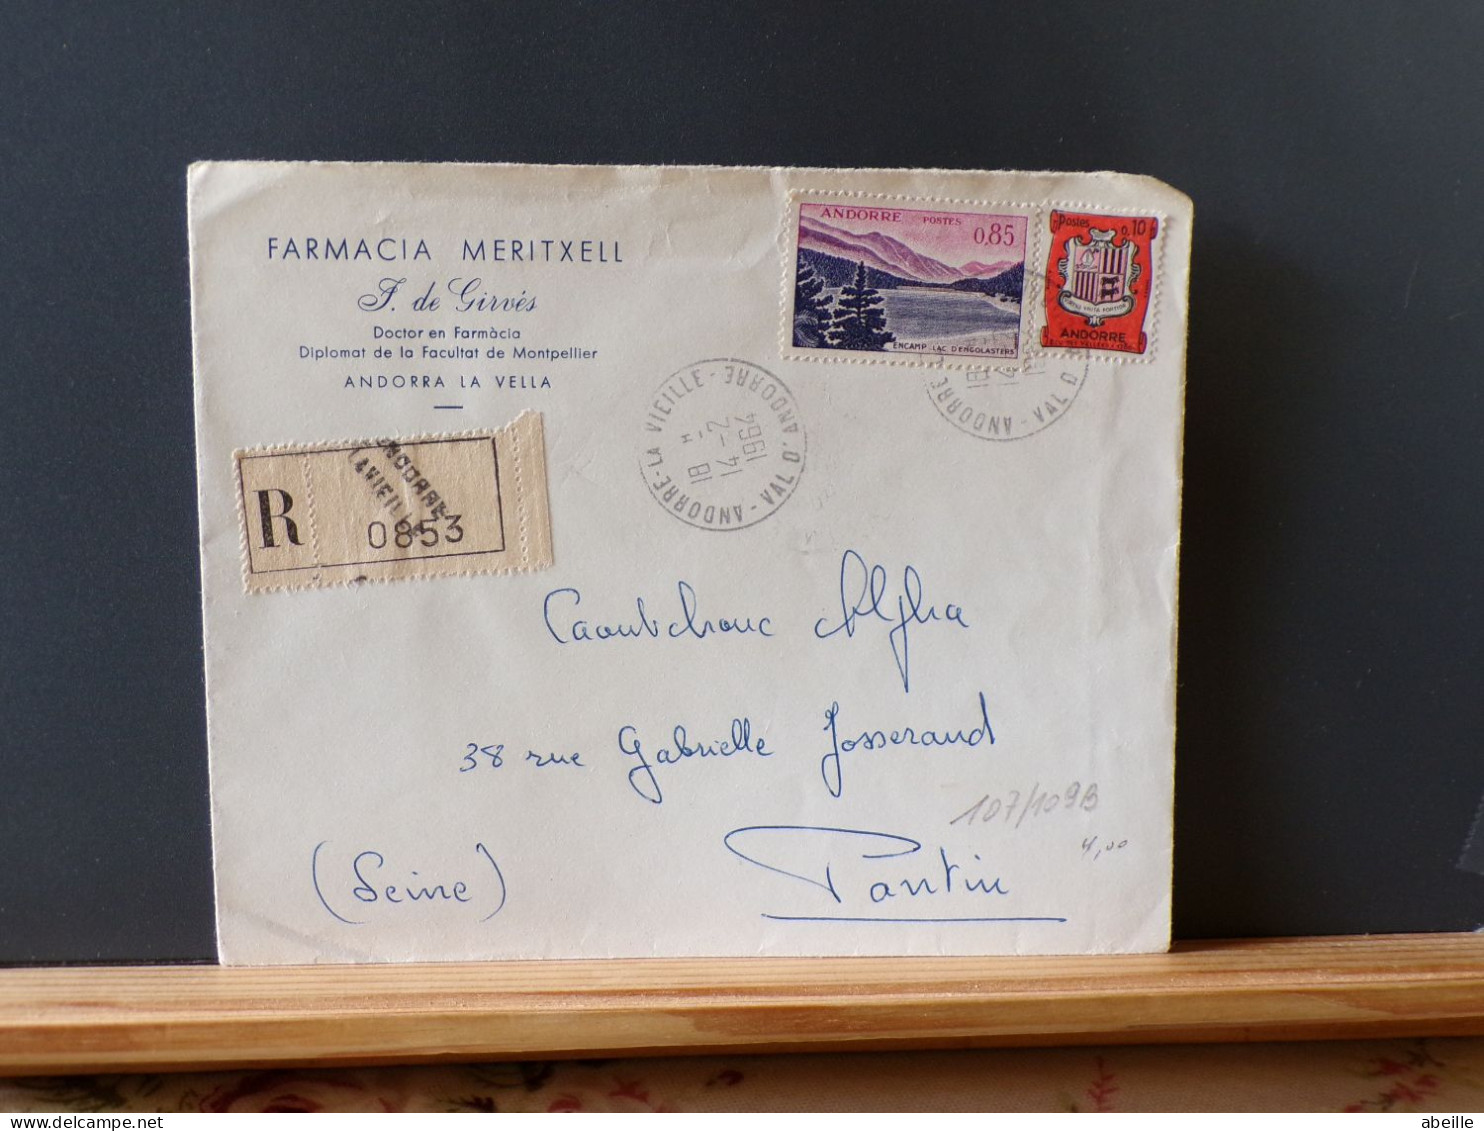 FARMACIA MERITXELL
J. de Girvés
Doctor en Farmàcia
Diplomat de la Facultat de Montpellier
ANDORRA LA VELLA
ANDORRE POSTES
0.85
ENCAMP LAC D'ENGOLASTERS
Postes
0,10
ANDORRE
ANDORRE-LA VIEILLE - ANDORRE - VAL D'ANDORRE -
18 H
14-2
1964
ANDORRE - VAL D
18
ANDORRE
LA VIEILLE
R
0853
Caoutchouc Alpha
38 rue Gabrielle Josserand
107/109B
4,00
(Seine)
Pantin
abeille